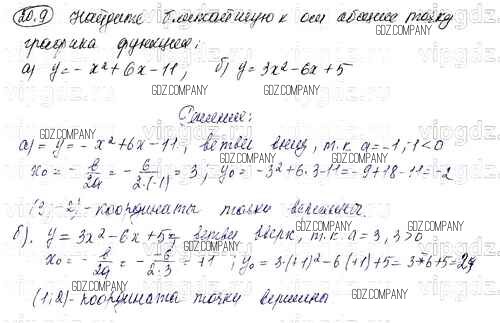 20.9 Найдите ближайшую к оси абсцисс точку
графика функции:
а) y = -x²+6x-11; б) y = 3x²-6x+5
Решение:
а) y = -x²+6x-11, ветви вниз, т.к. a=-1, -1<0
x₀ = -b/2a = -6/2·(-1) = 3; y₀ = -3²+6·3-11=-9+18-11=-2
(3;-2)-координаты точки вершины.
б). y = 3x²-6x+5 - ветви вверх, т.к. a=3, 3>0
x₀ = -b/2a = - -6/2·3 = +1; y₀=3·(+1)²-6(+1)+5=3-6+5=2
(1;2)-координаты точки вершины